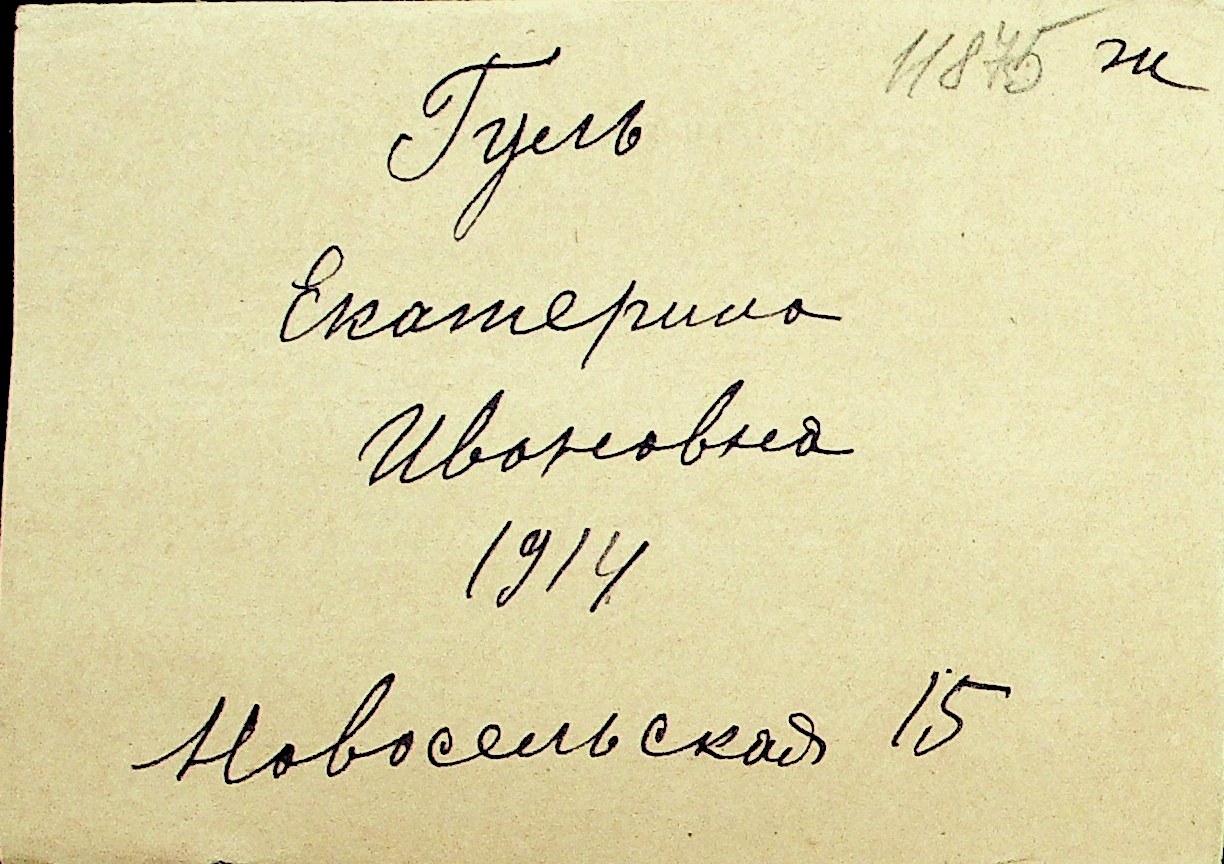 11875 ж
Гуль
Екатерина
Ивановна
1914
Новосельская 15